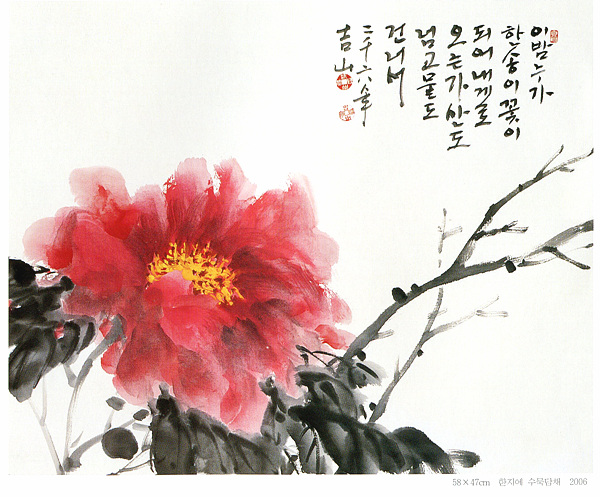 이밤누가
한송이꽃이
되어내게로
오는가산도
넘고물도
건너서
二千六年
吉山
58×47cm 한지에 수묵담채 2006